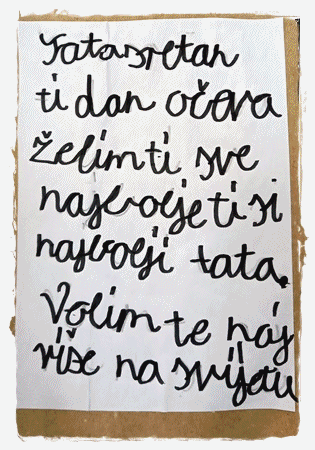 Tata sretan
ti dan očeva
želim ti sve
najbolje ti si
najbolji tata.
Volim te naj
više na svijetu